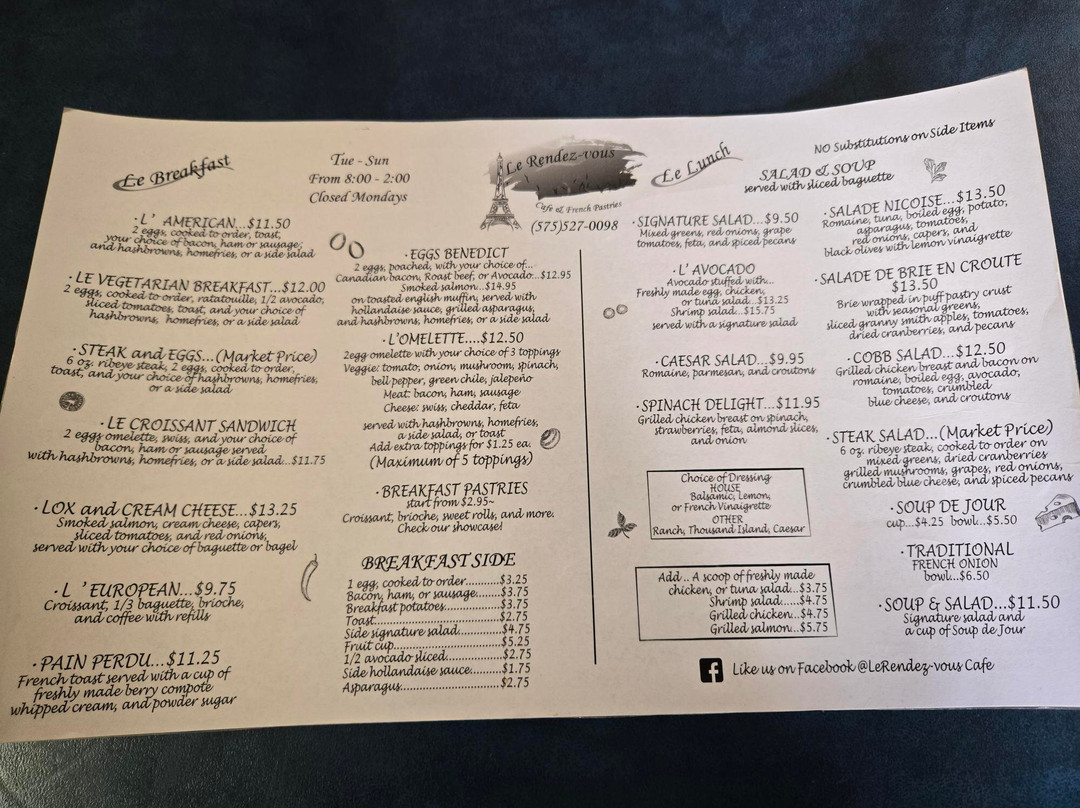 Le Breakfast
Tue - Sun
From 8:00 - 2:00
Closed Mondays
Le Rendez-vous
Cafe & French Pastries
(575)527-0098
Le Lunch
NO Substitutions on Side Items
· L' AMERICAN...$11.50
2 eggs, cooked to order, toast,
your choice of bacon, ham or sausage;
and hashbrowns, homefries, or a side salad
· LE VEGETARIAN BREAKFAST...$12.00
2 eggs, cooked to order, ratatouille, 1/2 avocado,
sliced tomatoes, toast, and your choice of
hashbrowns, homefries, or a side salad
· STEAK and EGGS...(Market Price)
6 oz. ribeye steak, 2 eggs, cooked to order,
toast, and your choice of hashbrowns, homefries,
or a side salad
· LE CROISSANT SANDWICH
2 eggs omelette, swiss, and your choice of
bacon, ham or sausage served
with hashbrowns, homefries, or a side salad...$11.75
· LOX and CREAM CHEESE...$13.25
Smoked salmon, cream cheese, capers,
sliced tomatoes, and red onions,
served with your choice of baguette or bagel
· L' EUROPEAN...$9.75
Croissant, 1/3 baguette, brioche,
and coffee with refills
· PAIN PERDU...$11.25
French toast served with a cup of
freshly made berry compote
whipped cream, and powder sugar
· EGGS BENEDICT
2 eggs, poached, with your choice of...
Canadian bacon, Roast beef, or Avocado...$12.95
Smoked salmon...$14.95
on toasted english muffin, served with
hollandaise sauce, grilled asparagus,
and hashbrowns, homefries, or a side salad
· L'OMELETTE....$12.50
2egg omelette with your choice of 3 toppings
Veggie: tomato, onion, mushroom, spinach,
bell pepper, green chile, jalepeño
Meat: bacon, ham, sausage
Cheese: swiss, cheddar, feta
served with hashbrowns, homefries,
a side salad, or toast
Add extra toppings for $1.25 ea.
(Maximum of 5 toppings)
· BREAKFAST PASTRIES
start from $2.95~
Croissant, brioche, sweet rolls, and more.
Check our showcase!
BREAKFAST SIDE
1 egg, cooked to order...........$3.25
Bacon, ham, or sausage......$3.75
Breakfast potatoes................$3.75
Toast...............................$2.75
Side signature salad..............$4.75
Fruit cup...........................$5.25
1/2 avocado sliced..............$2.75
Side hollandaise sauce........$1.75
Asparagus.........................$2.75
· SIGNATURE SALAD...$9.50
Mixed greens, red onions, grape
tomatoes, feta, and spiced pecans
· L' AVOCADO
Avocado stuffed with...
Freshly made egg, chicken,
or tuna salad...$13.25
Shrimp salad...$15.75
served with a signature salad
· CAESAR SALAD...$9.95
Romaine, parmesan, and croutons
· SPINACH DELIGHT...$11.95
Grilled chicken breast on spinach,
strawberries, feta, almond slices,
and onion
Choice of Dressing
HOUSE
Balsamic, Lemon,
or French Vinaigrette
OTHER
Ranch, Thousand Island, Caesar
Add... A scoop of freshly made
chicken, or tuna salad...$3.75
Shrimp salad.....$4.75
Grilled chicken...$4.75
Grilled salmon...$5.75
SALAD & SOUP
served with sliced baguette
· SALADE NICOISE...$13.50
Romaine, tuna, boiled egg, potato,
asparagus, tomatoes,
red onions, capers, and
black olives with lemon vinaigrette
· SALADE DE BRIE EN CROUTE
$13.50
Brie wrapped in puff pastry crust
with seasonal greens,
sliced granny smith apples, tomatoes,
dried cranberries, and pecans
· COBB SALAD...$12.50
Grilled chicken breast and bacon on
romaine, boiled egg, avocado,
tomatoes, crumbled
blue cheese, and croutons
· STEAK SALAD...(Market Price)
6 oz. ribeye steak, cooked to order on
mixed greens, dried cranberries
grilled mushrooms, grapes, red onions,
crumbled blue cheese, and spiced pecans
· SOUP DE JOUR
cup...$4.25 bowl...$5.50
· TRADITIONAL
FRENCH ONION
bowl...$6.50
· SOUP & SALAD...$11.50
Signature salad and
a cup of Soup de Jour
Like us on Facebook @LeRendez-vous Cafe